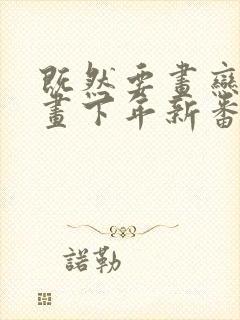 既然要畫戀
畫下年新番
諾勒